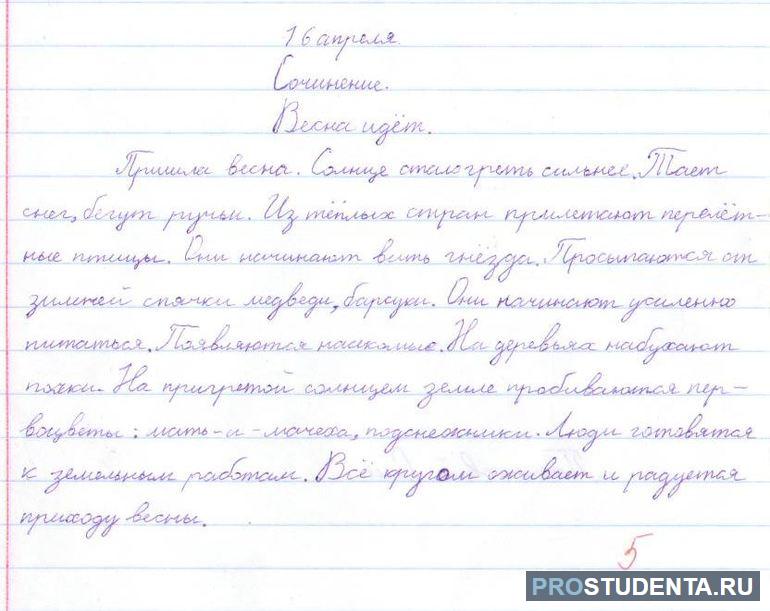 16 апреля.
Сочинение.
Весна идёт.
Пришла весна. Солнце стало греть сильнее. Тает
снег, бегут ручьи. Из тёплых стран прилетают перелёт-
ные птицы. Они начинают вить гнёзда. Просыпаются от
зимней спячки медведи, барсуки. Они начинают усиленно
питаться. Появляются насекомые. На деревьях набухают
почки. На пригретой солнцем земле пробиваются пер-
воцветы: мать-и-мачеха, подснежники. Люди готовятся
к земельным работам. Всё кругом оживает и радуется
приходу весны.
5
PROSTUDENTA.RU